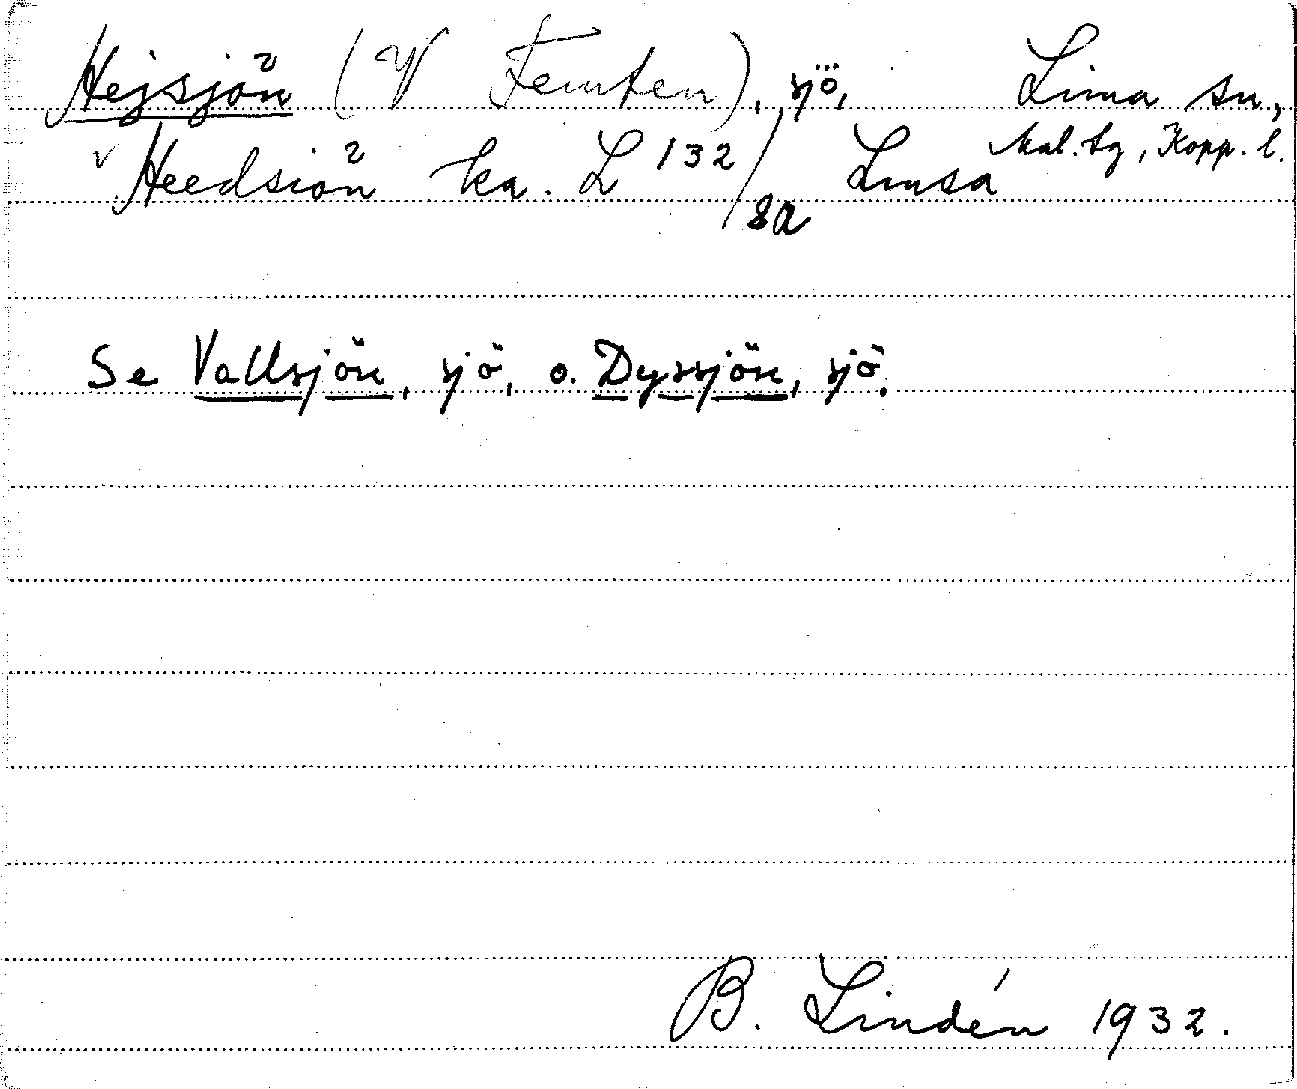 Hejsjön (V Femten), sjö, Lima sn,
Mal. tg, Kopp. l.
v Heedsiön ka. L 132/8a Limsa
Se Vallsjön, sjö, o. Dyssjön, sjö.
B. Lindén 1932.